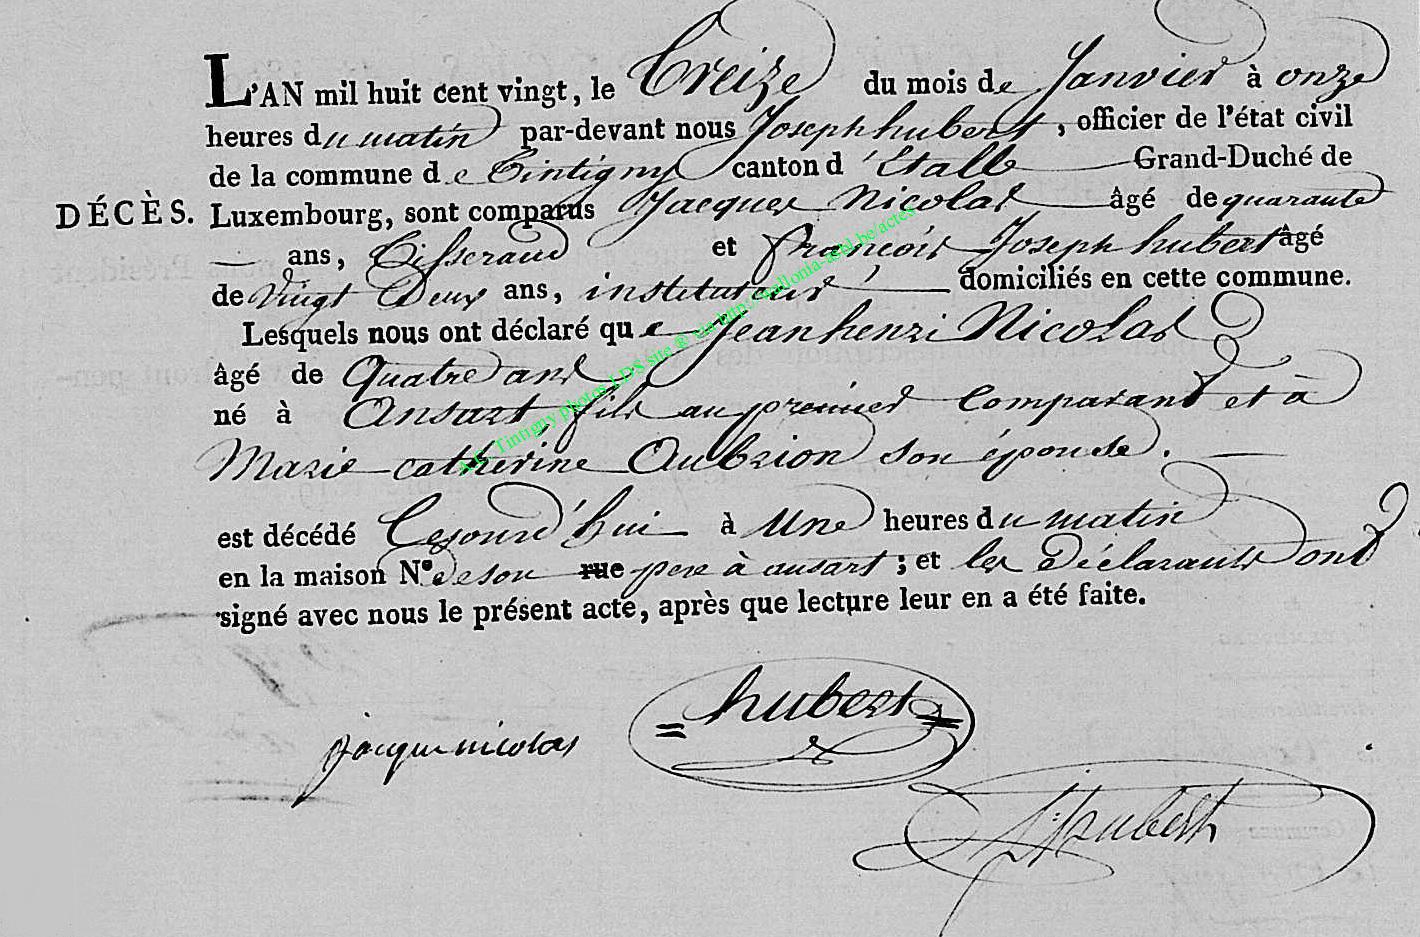 L'AN mil huit cent vingt, le Treize du mois de Janvier à onze
heures du matin par-devant nous Joseph hubert, officier de l'état civil
de la commune de Tintigny canton d'Etalle Grand-Duché de
DÉCÈS. Luxembourg, sont comparus Jacques Nicolas âgé de quarante
ans, Tisserand et françois Joseph hubert âgé
de vingt Deux ans, instituteur domiciliés en cette commune.
Lesquels nous ont déclaré que Jean henri Nicolas
âgé de Quatre ans
né à Ansart, fils au premier Comparant et à
Marie catherine Aubrion son épouse.
est décédé Cejourd'hui à Une heures du matin
en la maison N.º de son rue pere à ansart ; et les Déclarants ont
signé avec nous le présent acte, après que lecture leur en a été faite.
hubert
jacque nicolas
J: hubert
A.E. Tintigny photos LDS site ® via http://wallonia-asbl.be/actes